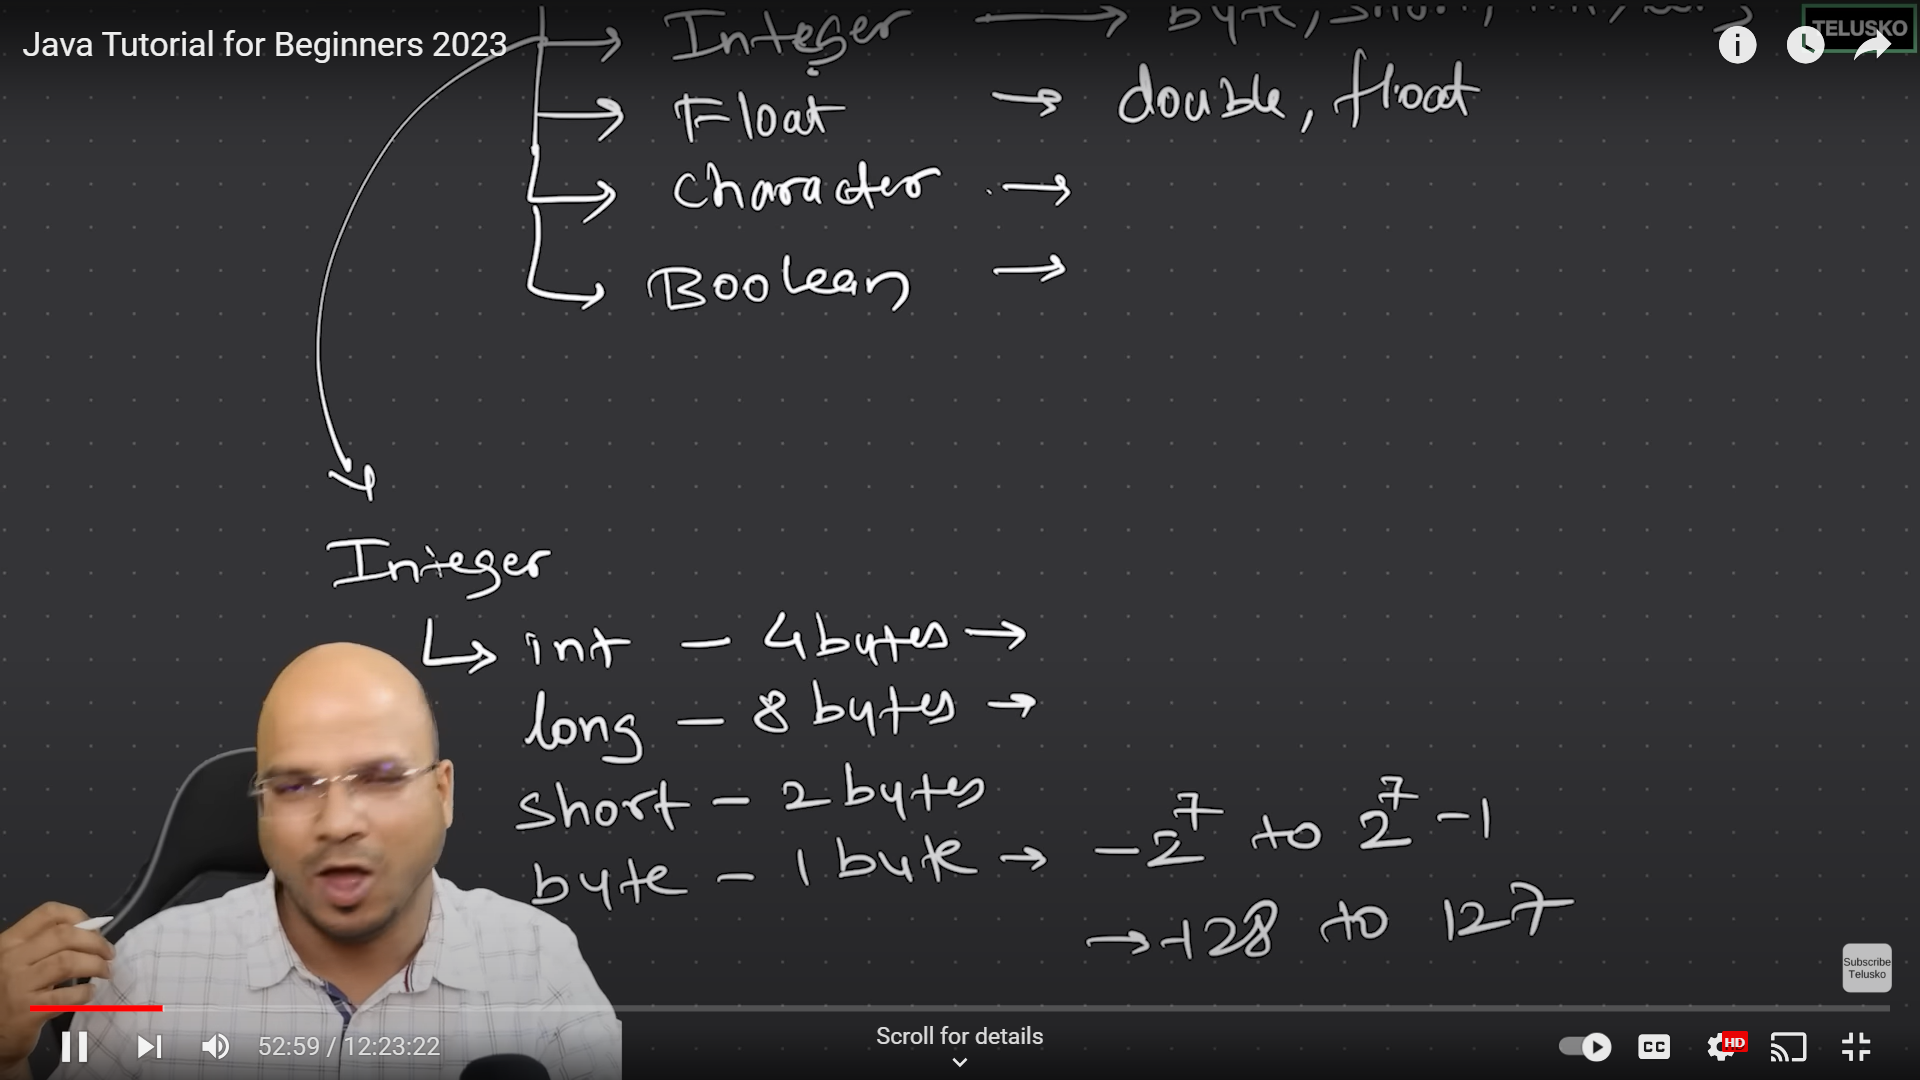 Java Tutorial for Beginners 2023
TELUSKO
Integer → byte, short, int, long
Float → double, float
Character →
Boolean →
Integer
int - 4 bytes →
long - 8 bytes →
short - 2 bytes
byte - 1 byte → -2⁷ to 2⁷ -1
→ -128 to 127
Subscribe
Telusko
52:59 / 12:23:22
Scroll for details
CC
HD